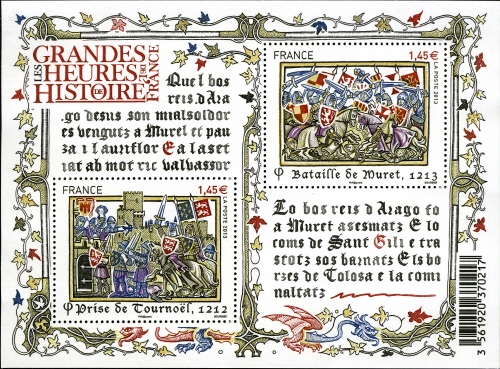 LES GRANDES
HEURES
HISTOIRE
DE
DE FRANCE
Quel bos
reis d'Ara
go desus son mialsoldor
es vengutz a Murel et pau
za i l'auriflor E a laset
iat ab mot ric valvassor
FRANCE 1,45€
LA POSTE 2013
φ Bataille de Muret, 1213
FRANCE 1,45€
LA POSTE 2013
φ Prise de Tournoël, 1212
Lo bos reis d'Arago fo
a Muret asesmatz E lo
coms de Sant Gili e tra
stotz sos barnatz E ls bo
rzes de Tolosa e la comi
naltatz
3 561920 370217